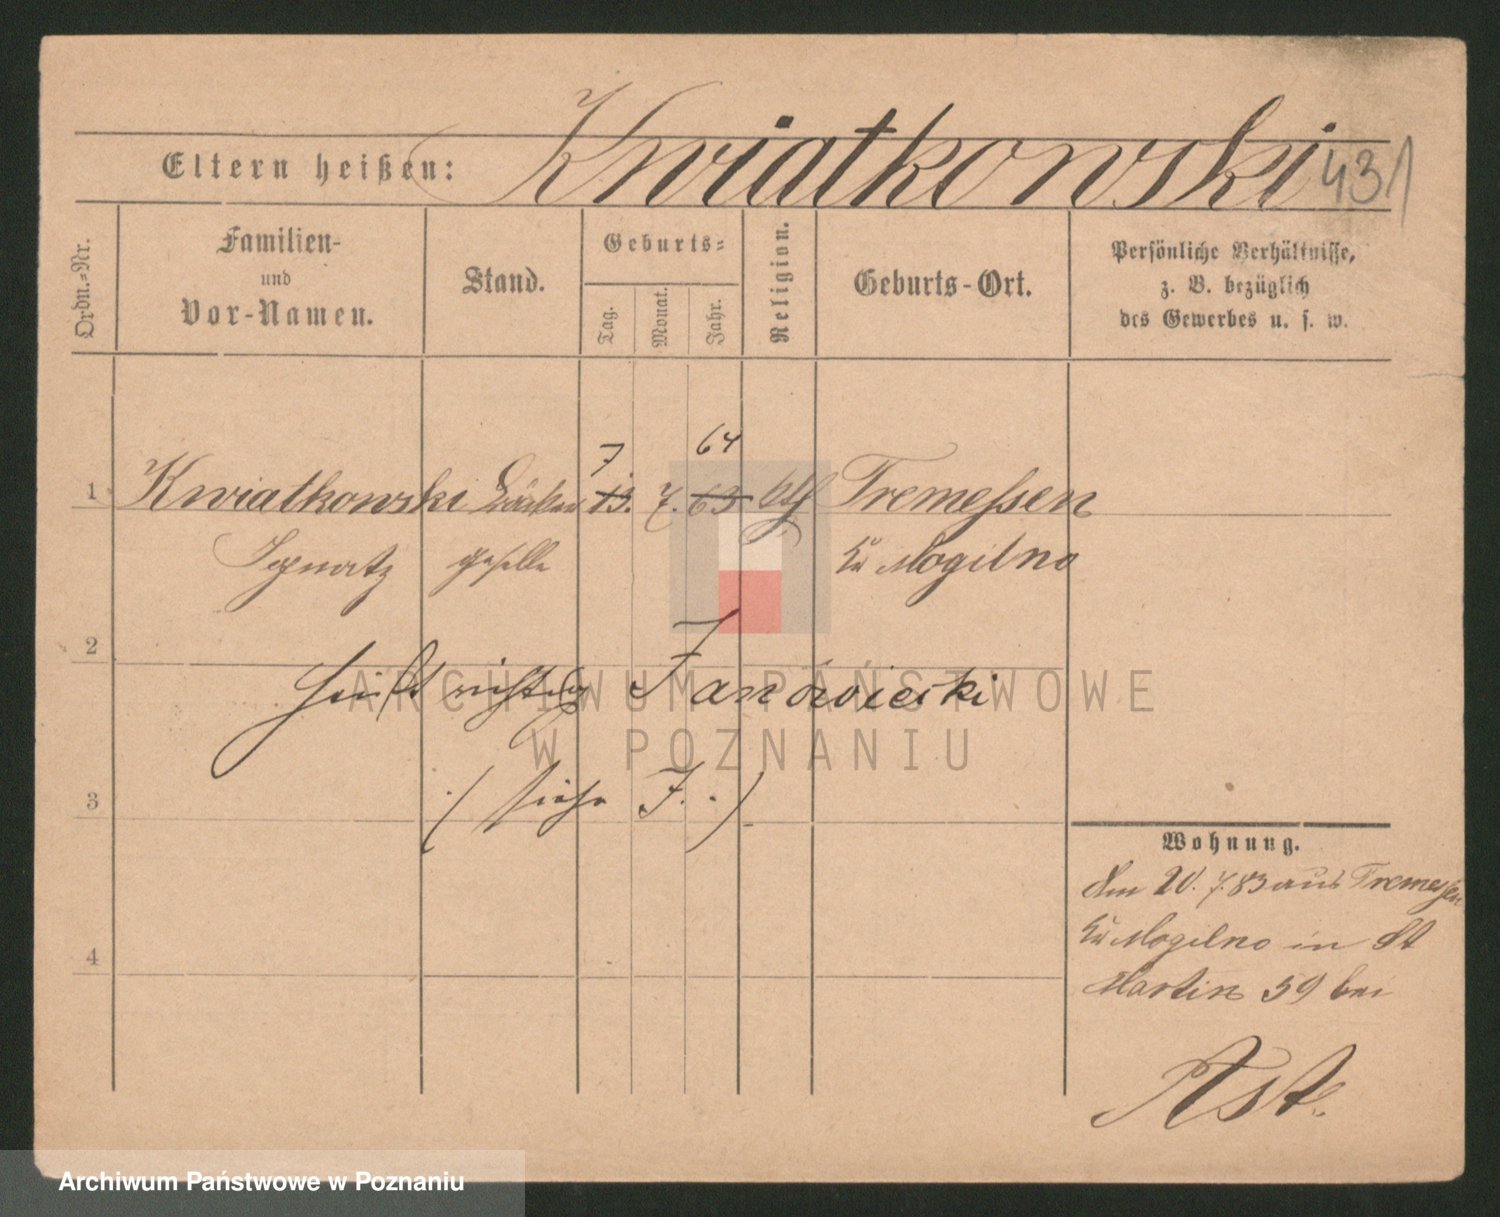 Kwiatkowski
431
Eltern heißen:
Ordn.-Nr.
Familien-
und
Vor-Namen.
Stand.
Geburts-
Tag.
Monat.
Jahr.
Religion.
Geburts-Ort.
Persönliche Verhältnisse,
z. B. bezüglich
des Gewerbes u. s. w.
7 64
1 Kwiatkowski Bäcker 13. 7. 63 kth Tremessen
Ignatz geselle Kr Mogilno
2
heißt richtig Janowiecki
(siehe J.)
3
4
Wohnung.
Am 20. 7. 83 aus Tremessen
Kr Mogilno in St
Martin 59 bei
ARCHIWUM PAŃSTWOWE
W POZNANIU
Archiwum Państwowe w Poznaniu